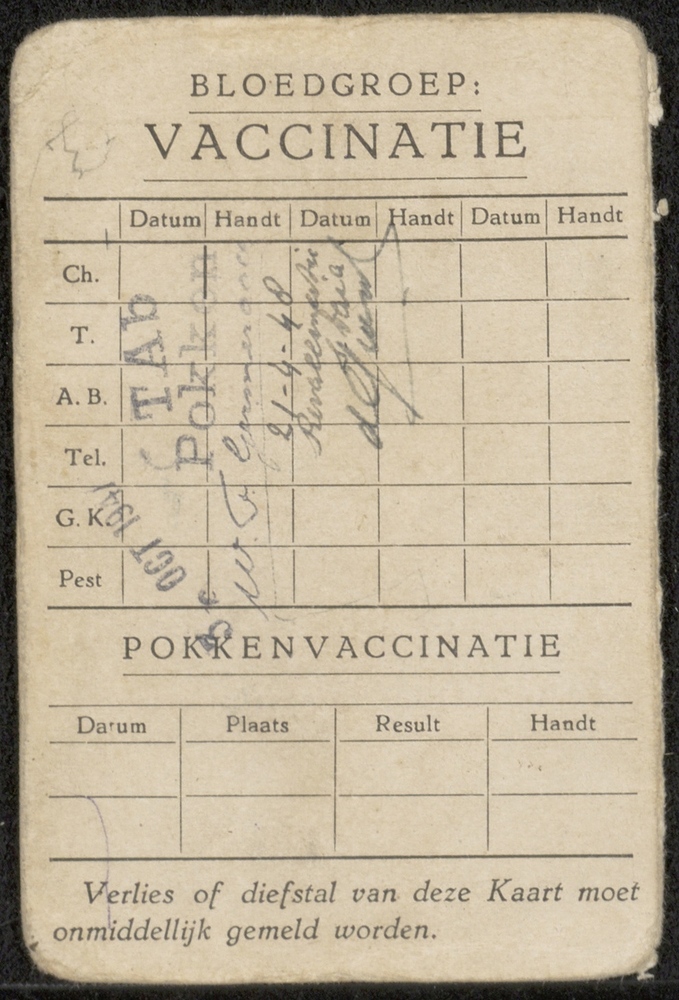 BLOEDGROEP:
VACCINATIE
Datum Handt Datum Handt Datum Handt
Ch.
T.
A. B.
Tel.
G. K.
Pest
TAB
Pokken
21-4-48
OCT 194
POKKENVACCINATIE
Datum Plaats Result Handt
Verlies of diefstal van deze Kaart moet
onmiddellijk gemeld worden.